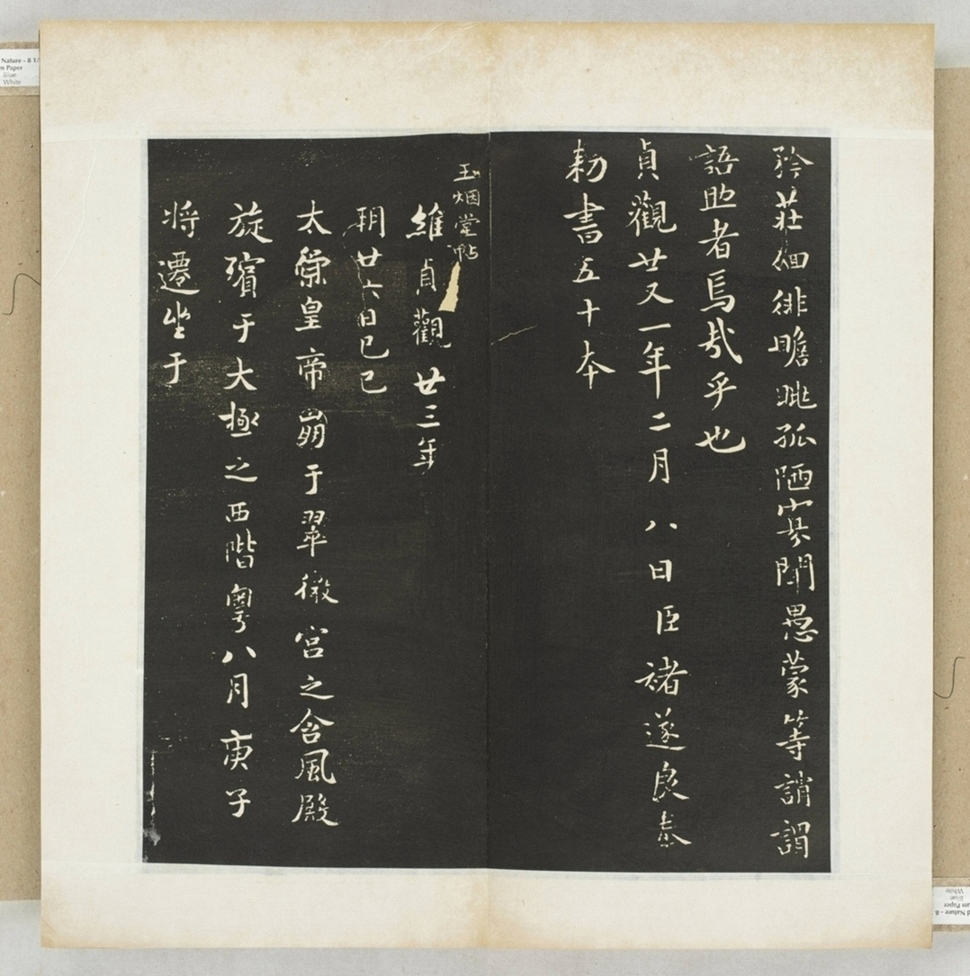 矜莊徊徘瞻眺孤陋寡聞愚蒙等誚謂
語助者焉哉乎也
貞觀廿又一年二月八日臣褚遂良奉
勑書五十本
玉烟堂帖
維貞觀廿三年
朔廿六日己巳
太宗皇帝崩于翠微宮之含風殿
旋殯于大極之西階粵八月庚子
將遷坐于
Nature - 8 1/
n Paper
Blue
White